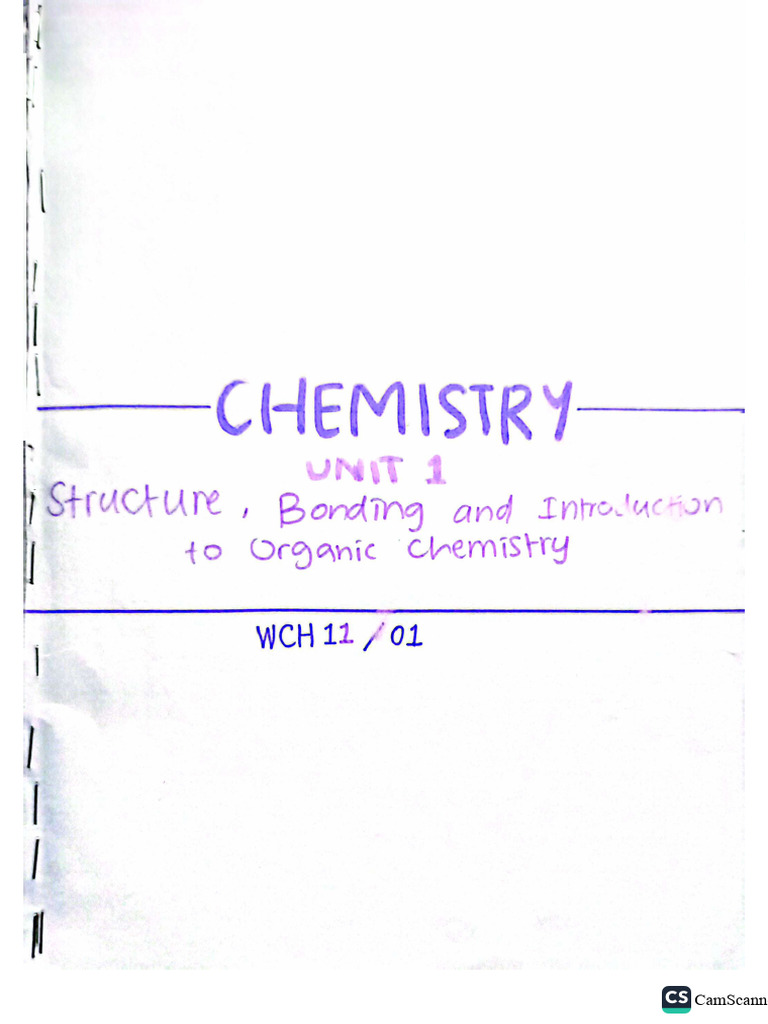 CHEMISTRY
UNIT 1
Structure, Bonding and Introduction
to Organic Chemistry
WCH 11/01
CS CamScann